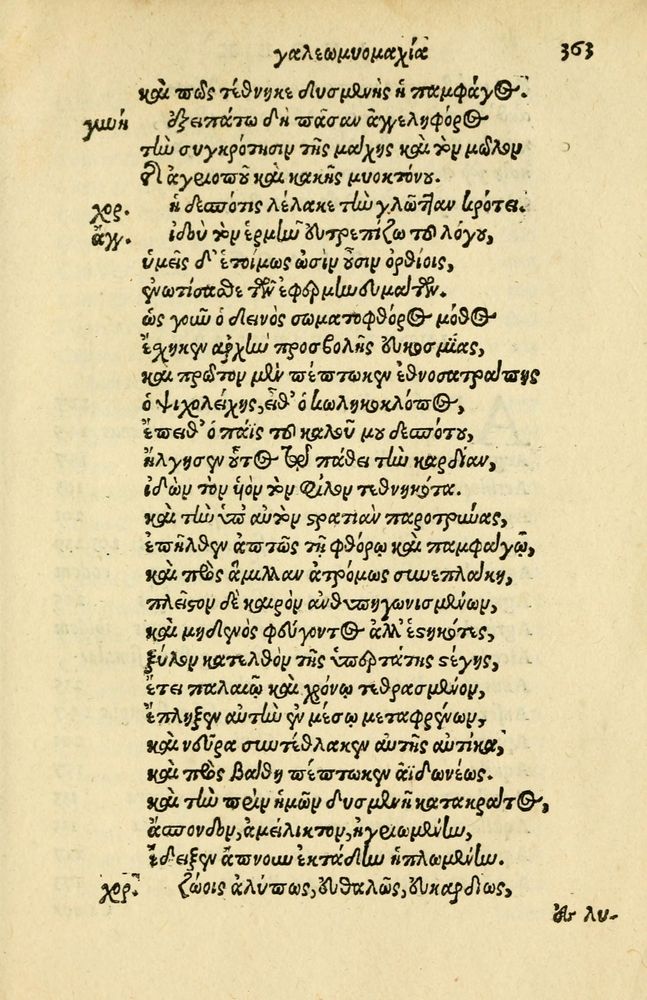 γαλεωμυομαχία 363
καὶ πῶς τέθνηκε δυσμενὴς ἡ παμφάγος.
γυνή ὀξειπάτω δὴ πᾶσαν ἀγγεληφόρος
τὴν συγκρότησιν τῆς μάχης καὶ τὸν μῶλον
τῆς ἀγριωποῦ καὶ κακῆς μυοκτόνου.
χορ. ἡ δεσπότις λέλακε τὴν γλῶτταν κρότει.
ἄγγ. ἰδοὺ τὸν εἱρμὸν εὐτρεπίζω τοῦ λόγου,
ὑμεῖς δ' ἑτοίμως ὠσὶν οὖσιν ὀρθίοις,
ἐνωτίσασθε τῶν ἐφερμηνευμάτων.
ὡς γοῦν ὁ δεινὸς σωματοφθόρος μόθος
ἔσχηκεν ἀρχὴν προσβολῆς εὐκοσμίας,
καὶ πρῶτον μὲν πέπτωκεν ἐθνοσατράπης
ὁ ψιχολείχης, εἶθ' ὁ κωληκοκλόπος,
ἔπειθ' ὁ παῖς τοῦ καλοῦ μου δεσπότου,
ἤλγησεν οὗτος τῷ πάθει τὴν καρδίαν,
ἰδὼν τὸν υἱὸν τὸν φίλον τεθνηκότα.
καὶ τὴν ὑπ' αὐτὸν στρατιὰν παροτρύνας,
ἐπῆλθεν ἀπτῶς τῇ φθόρῳ καὶ παμφάγῳ,
καὶ πρὸς ἅμιλλαν ἀτρόμως συνεπλάκη,
πλεῖστον δὲ καιρὸν ἀνθυπηγωνισμένων,
καὶ μηδενὸς φεύγοντος ἀλλ' ἑστηκότες,
ξύλον κατελθὸν τῆς ὑπερτάτης στέγης,
ἔτει παλαιῷ καὶ χρόνῳ τεθρασμένον,
ἔπληξεν αὐτὴν ἐν μέσῳ μεταφρένων,
καὶ νεῦρα συντέθλακεν αὐτῆς αὐτίκα,
καὶ πρὸς βάθη πέπτωκεν ἀϊδωνέως.
καὶ τὴν πρὶν ἡμῶν δυσμενῆ κατακράτος,
ἄσπονδον, ἀμείλικτον, ἠγριωμένην,
ἔδειξεν ἄπνουν ἐκτάδην ἡπλωμένην.
χορ. ζώοις ἀλύπως, εὐθαλῶς, εὐκαρδίως,
ἐκ λυ-